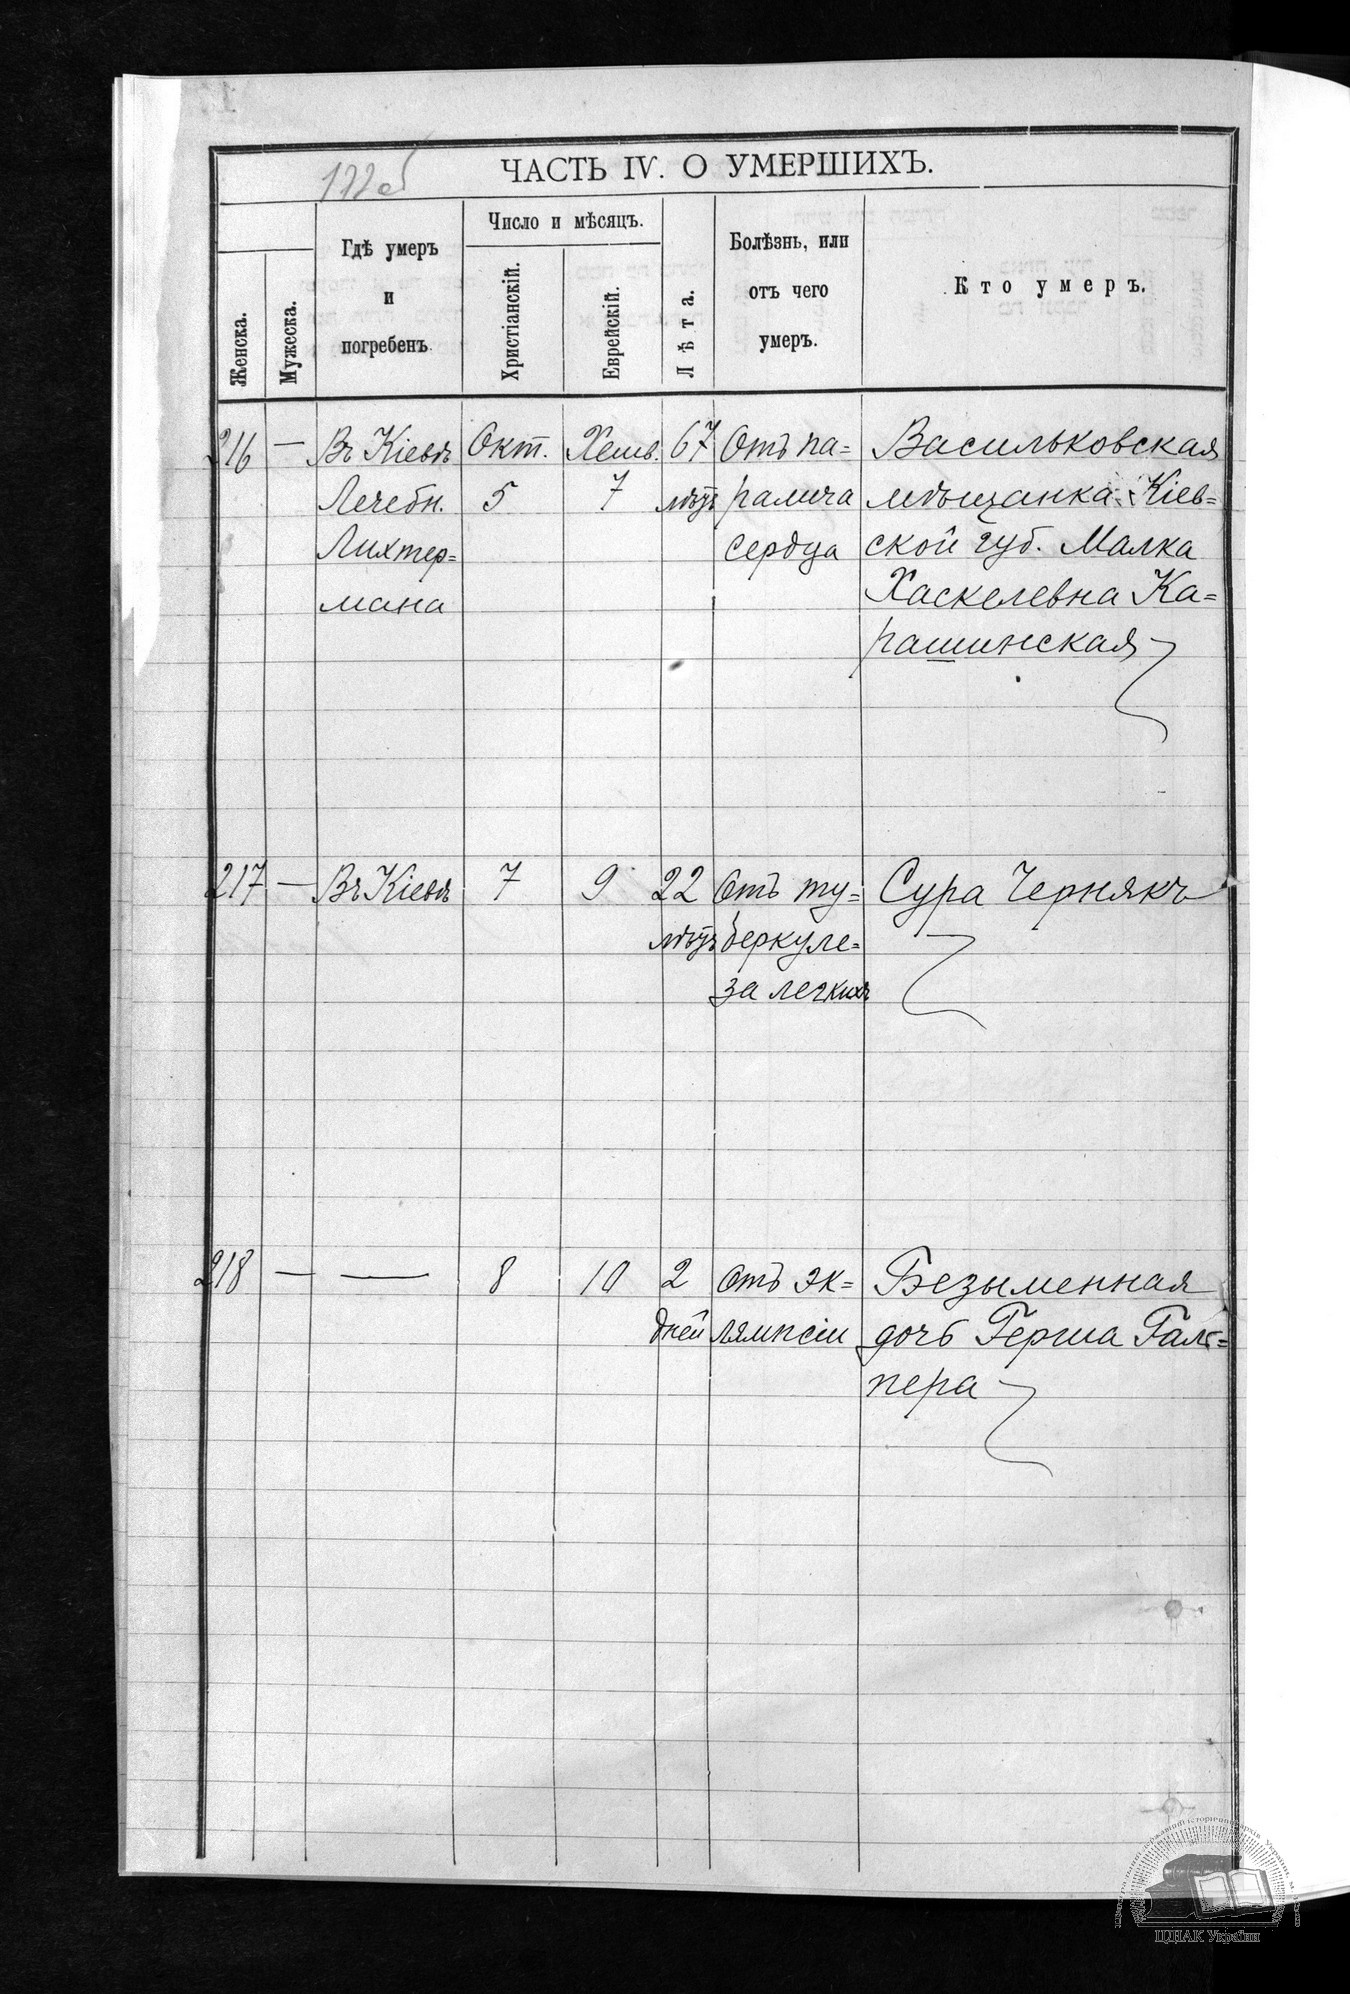 122об
ЧАСТЬ IV. О УМЕРШИХЪ.
Женска.
Мужеска.
Гдѣ умеръ
и
погребенъ
Число и мѣсяцъ.
Христіанскій.
Еврейскій.
Лѣта.
Болѣзнь, или
отъ чего
умеръ.
Кто умеръ.
216 — Въ Кіевѣ Окт. Хешв. 67 Отъ па= Васильковская
Лечебн. 5 7 лѣтъ ралича мѣщанка Кіев=
Лихтер= сердца ской губ. Малка
мана Хаскелевна Ка=
рашинская
217 — Въ Кіевѣ 7 9 22 Отъ ту= Сура Чернякъ
лѣтъ беркуле=
за легкихъ
218 — — 8 10 2 Отъ эк= Безыменная
дней лямпсіи дочь Герша Галь=
пера
ЦДІАК України